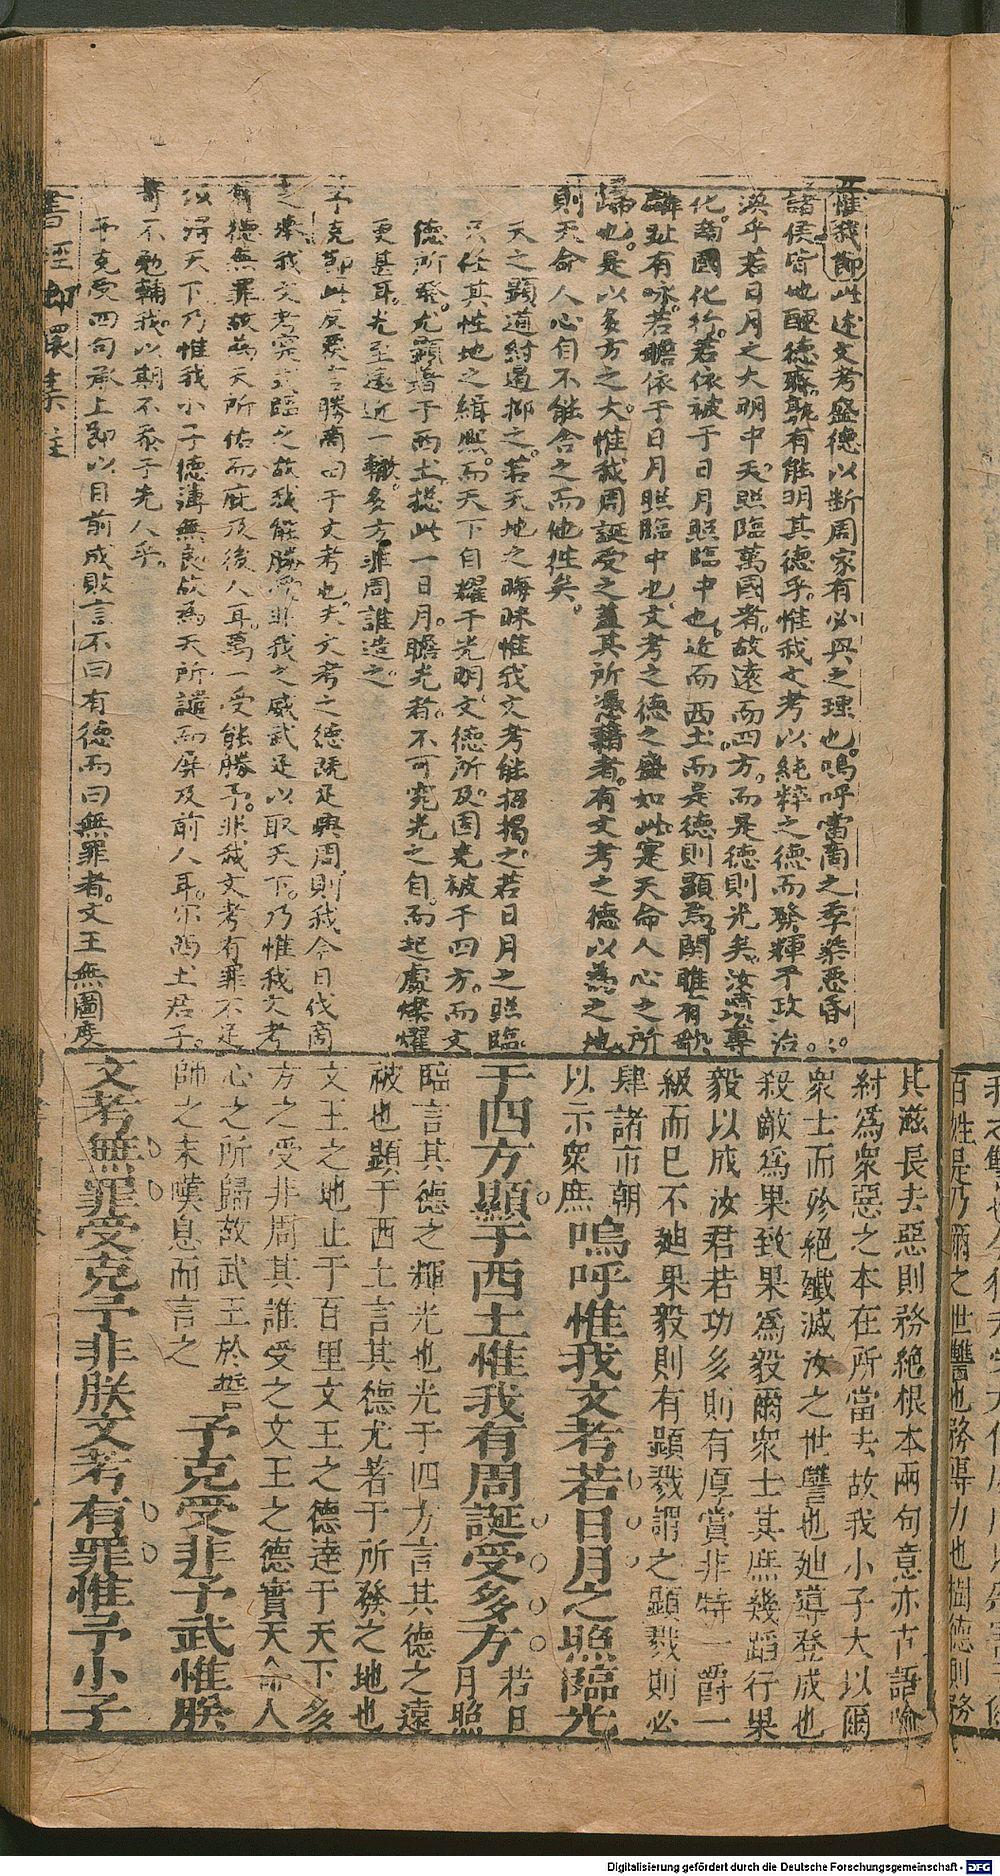 惟我節此述文考盛德以斷周家有必興之理也嗚呼當商之季桀惡昏
諸侯皆地醜德齊孰有能明其德乎惟我文考以純粹之德而發輝乎政治
渙乎若日月之大明中天照臨萬國者故遠而四方而是德則光矣汝墳
化商國化行若依被于日月照臨中也近而西土而是德則顯焉關雎有歌
麟趾有咏若瞻依于日月照臨中也文考之德之盛如此寔天命人心之所
歸也是以多方之大惟我周誕受之蓋其所憑藉者有文考之德以為之地
則天命人心自不能舍之而他往矣
天之顯道紂曷抑之若天地之晦昧惟我文考能招揭之若日月之照臨
只任其性地之緝熙而天下自耀于光明文德所及固光被于四方而文
德所發尤顯著于西土揔此一日月瞻光者不可究光之自而起處燦耀
更甚耳尤至遠近一轍多方非周誰造之
予克節此反覆言勝商由于文考也夫文考之德既足興周則我今日伐商
之舉我文考寔式臨之故我能勝受非我之威武足以取天下乃惟我文考
有德無罪故為天所佑而庇及後人耳萬一受能勝予非我文考有罪不足
以得天下乃惟我小子德薄無良故為天所譴而辱及前人耳尔西土君子
可不勉輔我以期不忝于先人乎
予克受四句承上節以目前成敗言不曰有德而曰無罪者文王無圖度
書經 集註
其滋長去惡則務絶根本兩句意亦古語喻
紂爲衆惡之本在所當去故我小子大以爾
衆士而殄絶殲滅汝之世讐也廸導登成也
殺敵爲果致果爲毅爾衆士其庶幾蹈行果
毅以成汝君若功多則有厚賞非特一爵一
級而已不廸果毅則有顯戮謂之顯戮則必
肆諸市朝
以示衆庶 嗚呼惟我文考若日月之照臨光
于四方顯于西土惟我有周誕受多方 若日月照
臨言其德之輝光也光于四方言其德之遠
被也顯于西土言其德尤著于所發之地也
文王之地止于百里文王之德達于天下多
方之受非周其誰受之文王之德實天命人
心之所歸故武王於誓
師之末嘆息而言之 予克受非予武惟朕
文考無罪受克予非朕文考有罪惟予小子
Digitalisierung gefördert durch die Deutsche Forschungsgemeinschaft - DFG